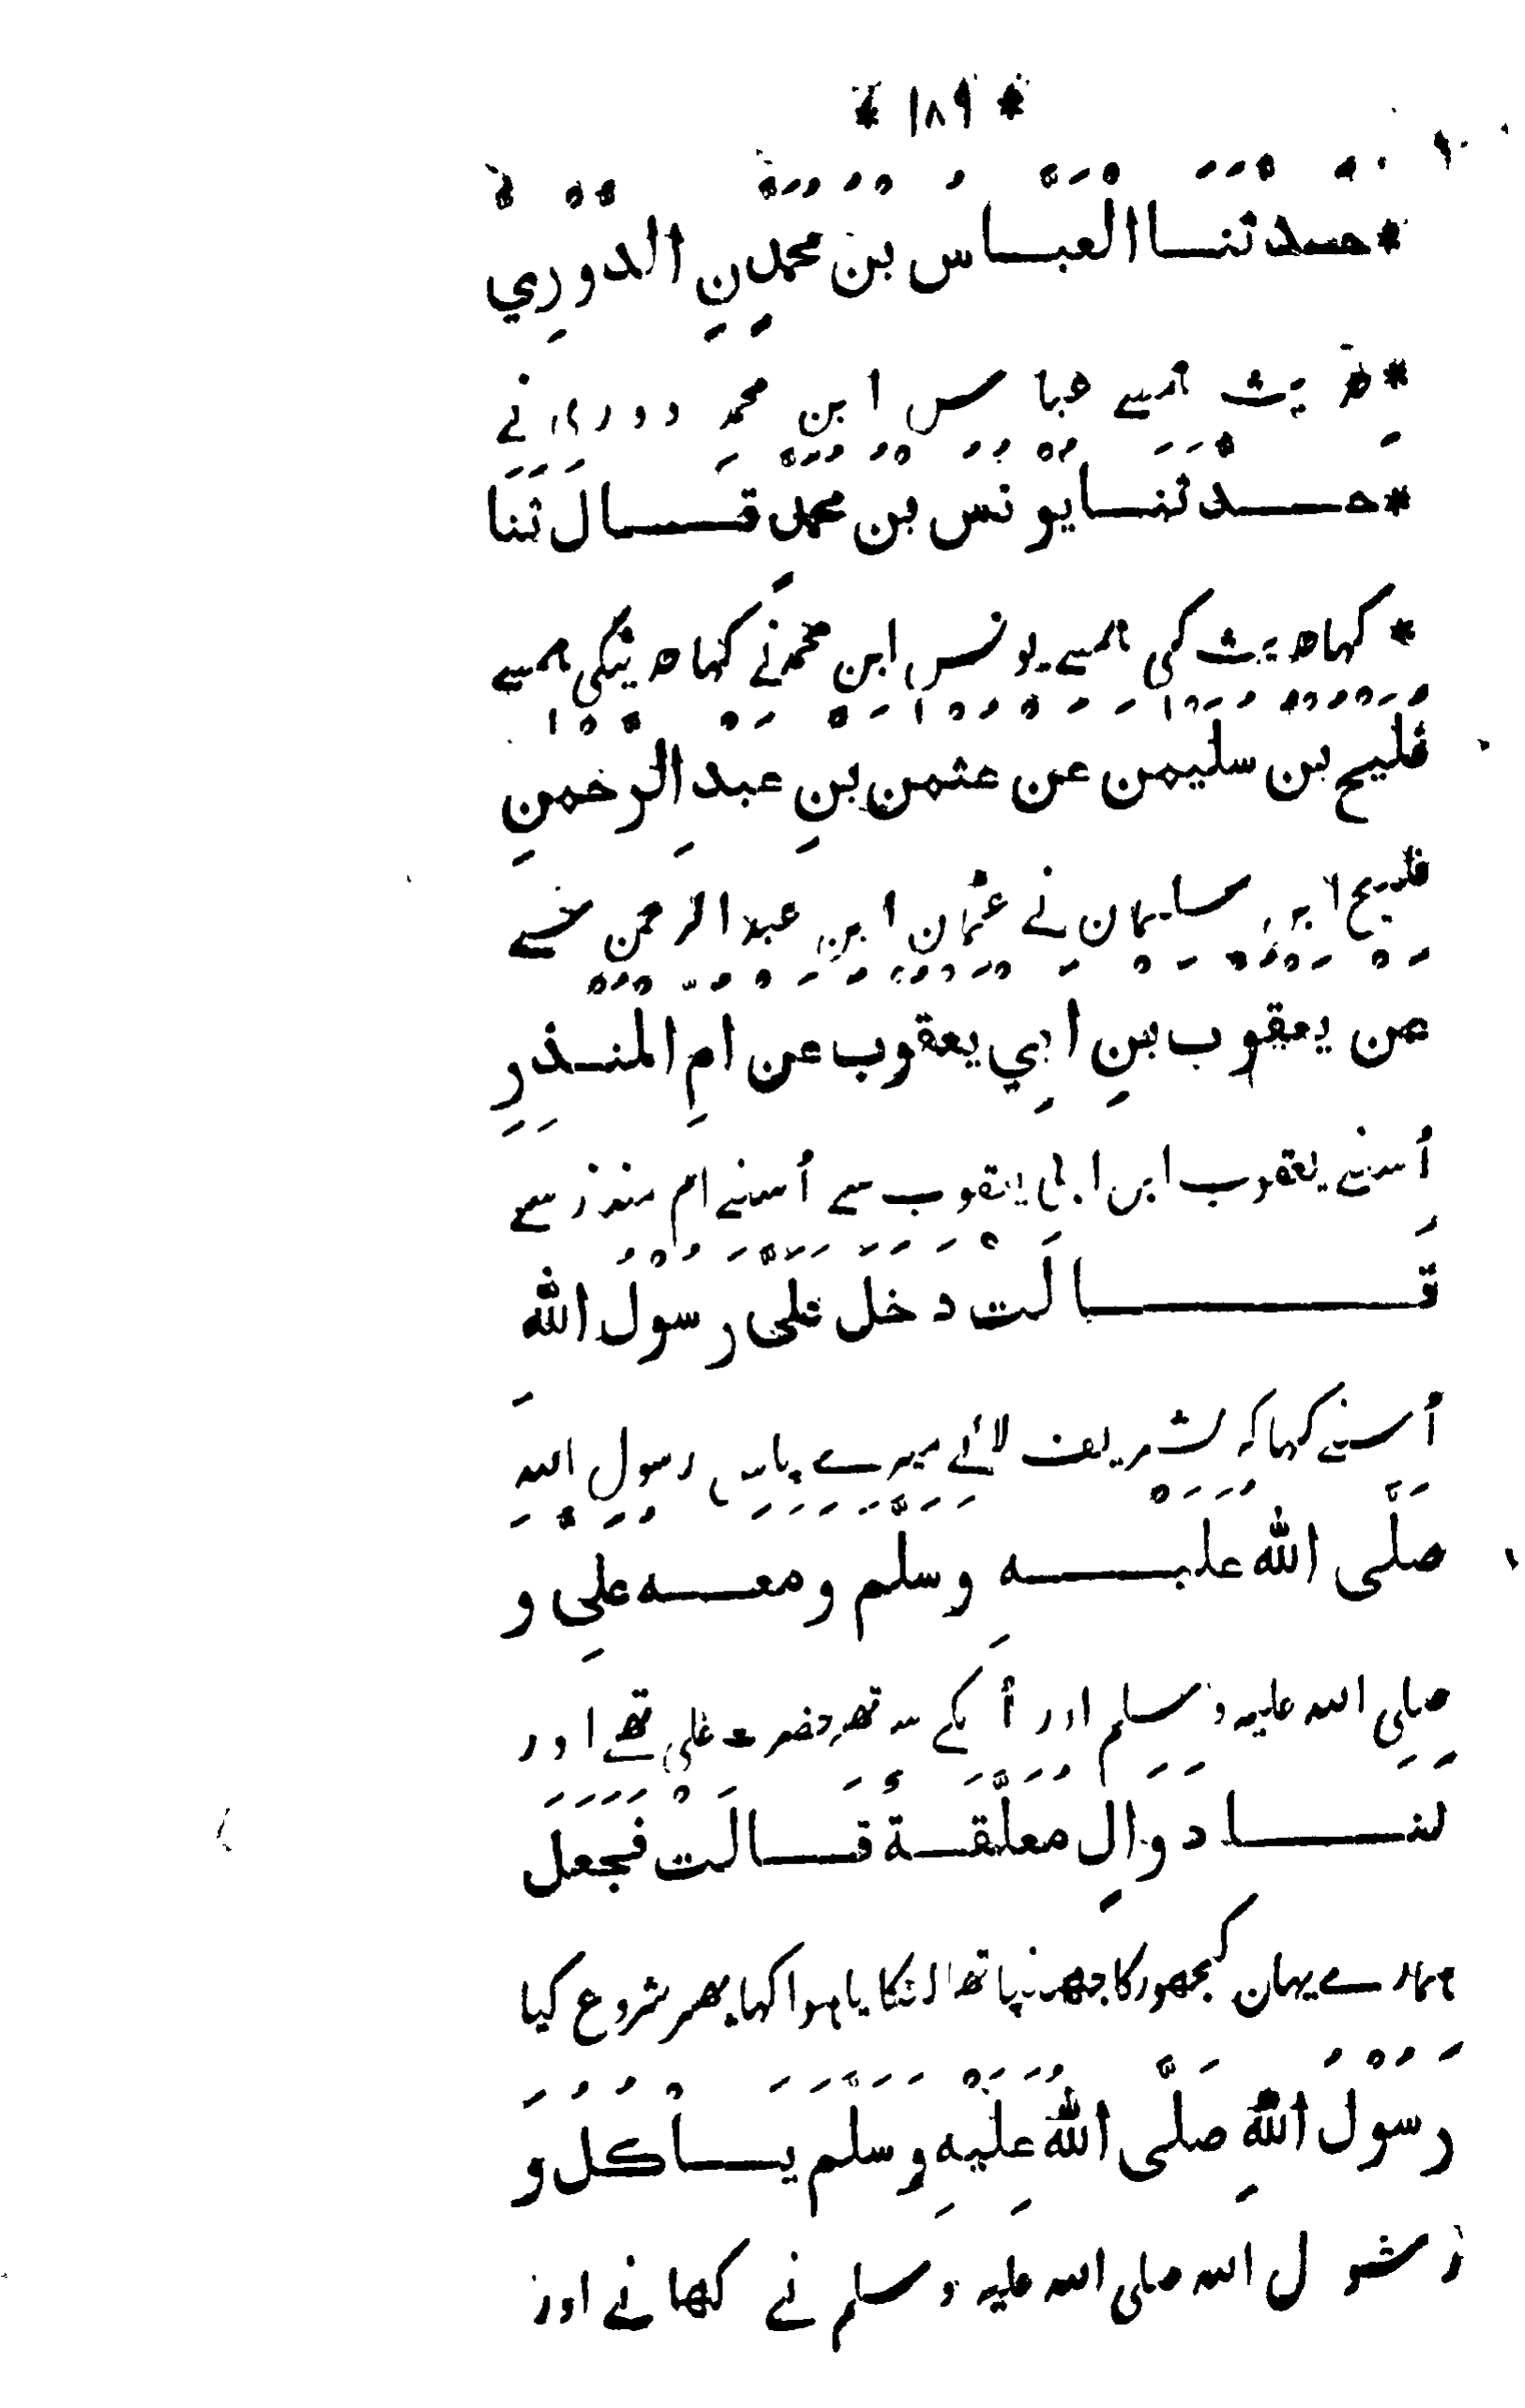 * ١٨٩ *
* حدثنا العباس بن محمدن الدوري
* حدیث ہمسے عباس ابن محمد دوری نے
* حدثنا يونس بن محمد قال ثنا
* کہا حدیث کی ہمسے یونس ابن محمد نے کہا حدیثکی ہمسے
فليح بن سليمن عن عثمن بن عبد الرحمن
فلیح ابن سلیمان نے عثمان ابن عبد الرحمن سے
عن يعقوب بن ابي يعقوب عن ام المنذر
اُسنے یعقوب ابن ابی یعقوب سے اُسنے ام منذر سے
قالت دخل علي رسول الله
اُسنے کہا کہ تشریف لائے میرے پاس رسول اللہ
صلى الله عليه وسلم ومعه علي و
صلی اللہ علیہ وسلم اور اُنکے ساتھ حضرت علی تھے اور
لنا دوال معلقة قالت فجعل
ہمارے یہان کجھور کا جھونپا تھا لٹکایا ہوا کہا پھر شروع کیا
رسول الله صلى الله عليه وسلم ياكل و
رسول اللہ صلی اللہ علیہ وسلم نے کھانے اور